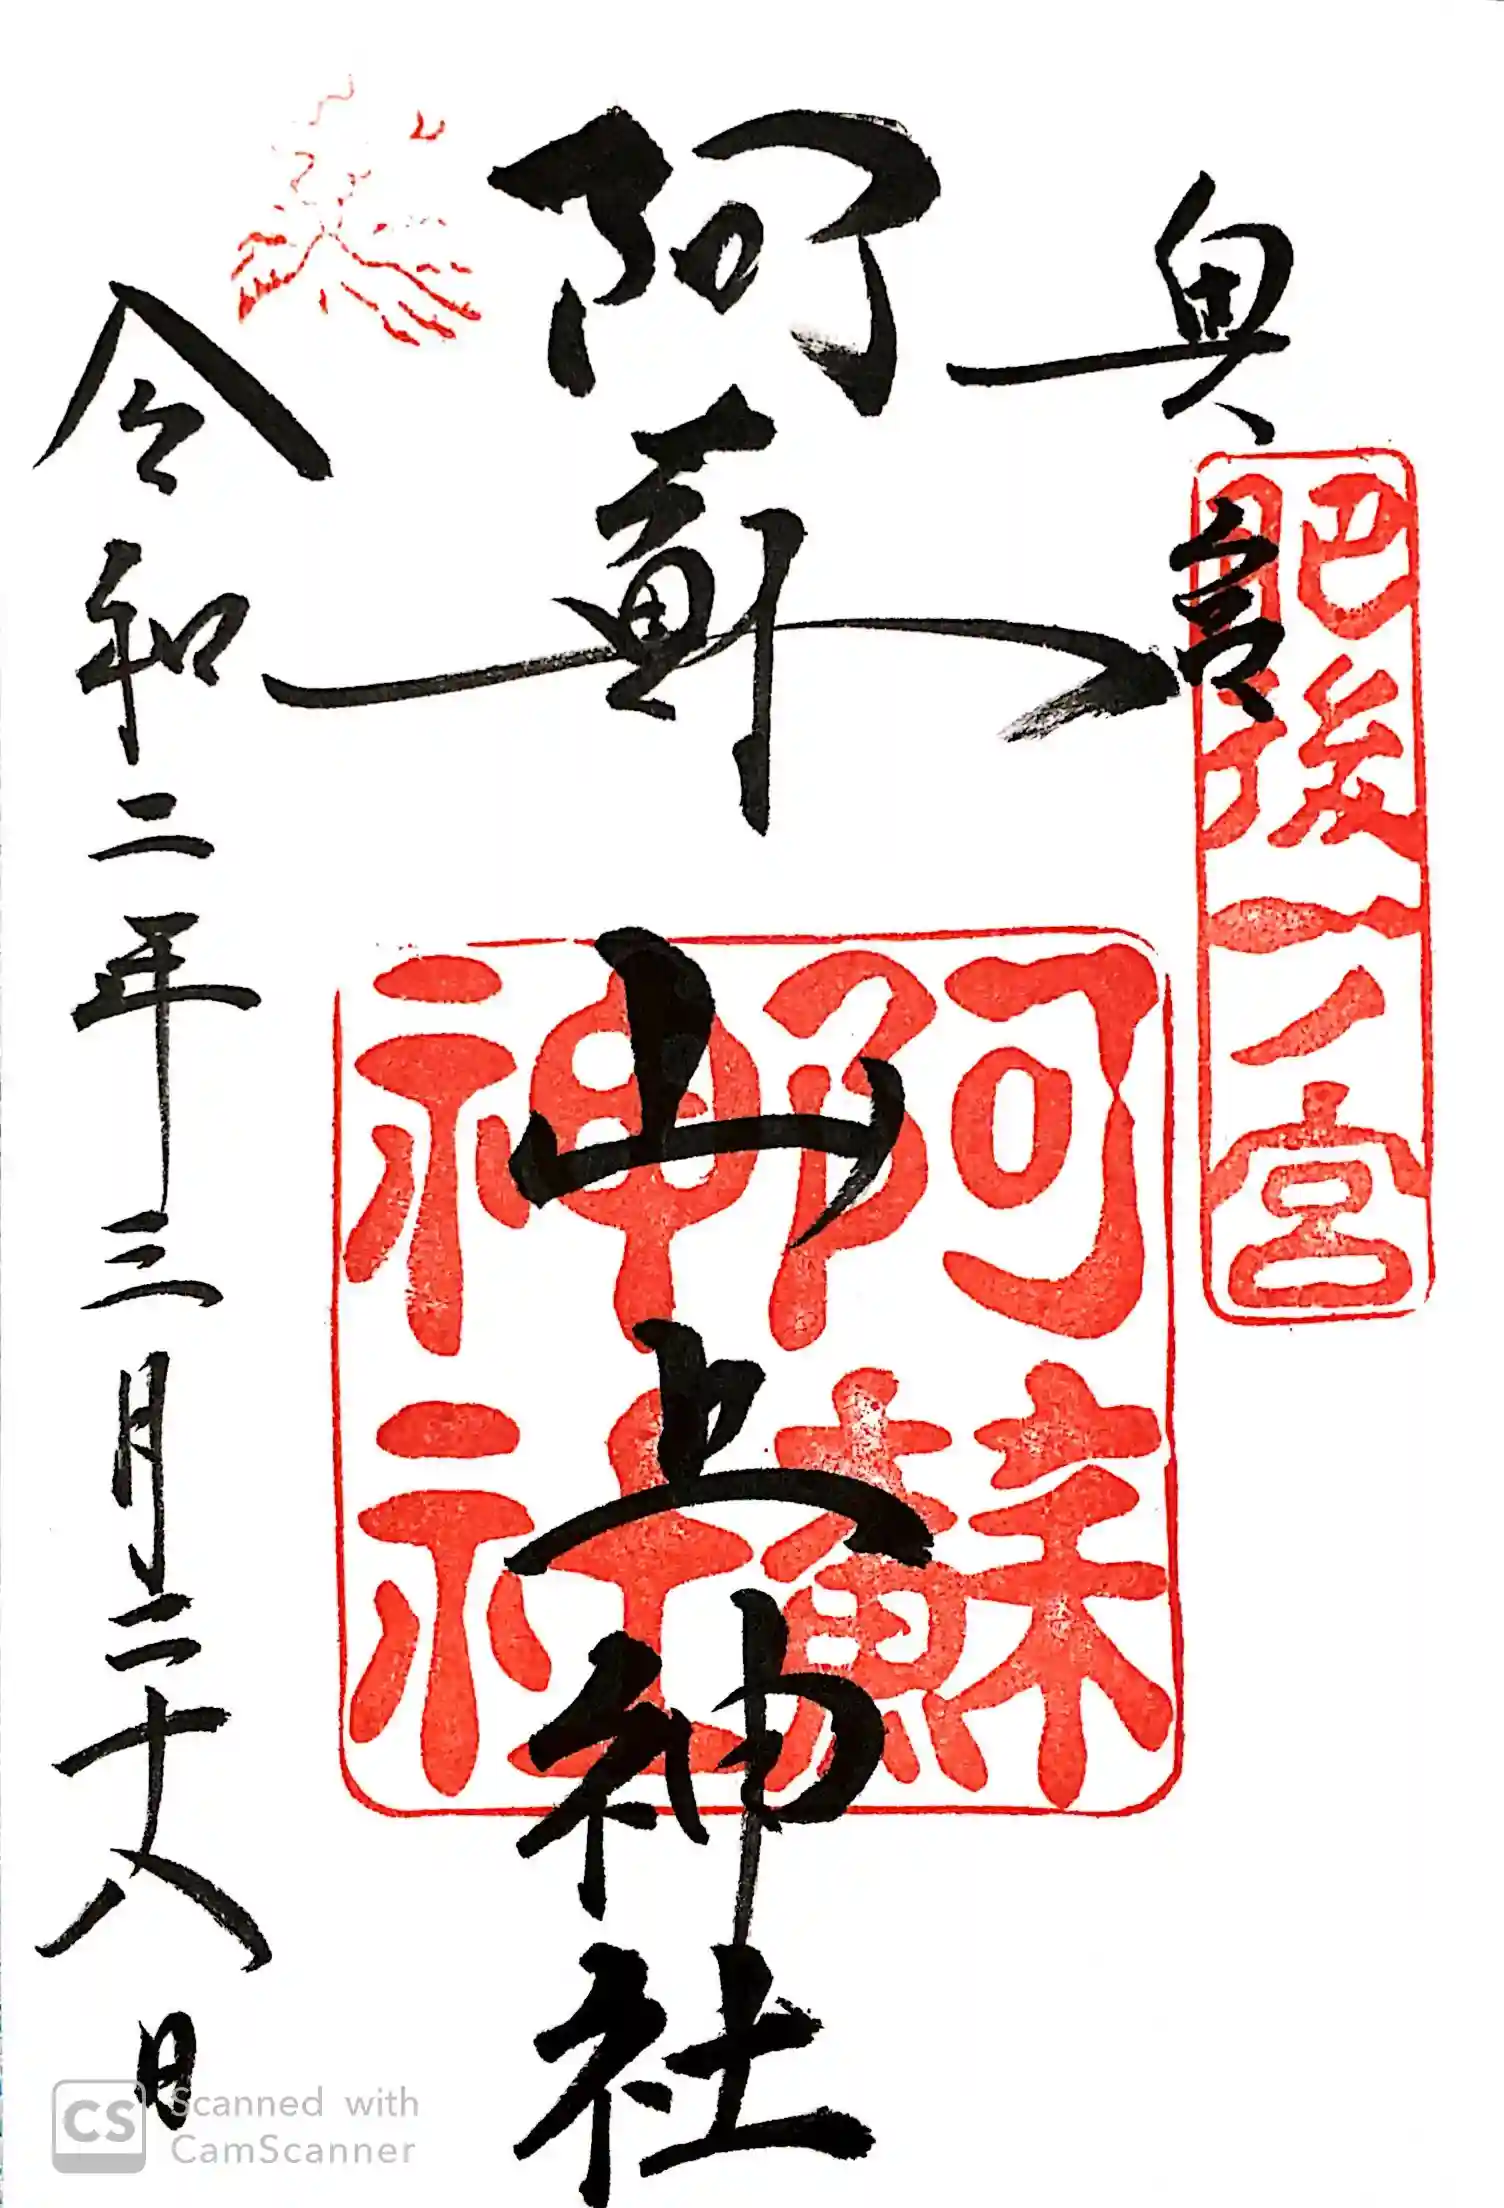 奥宮
肥後一ノ宮
阿蘇山上神社
阿蘇
神社
令和二年三月二十八日
CS Scanned with
CamScanner